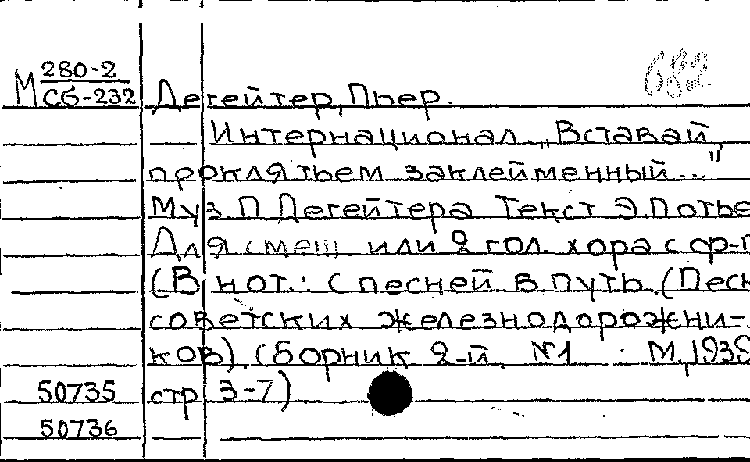 М 280-2
Сб-232
682
Дегейтер, Пьер.
Интернационал „Вставай,
проклятьем заклейменный..."
Муз. П. Дегейтера Текст Э. Потье
Для смеш или 2 гол. хора с ф-п
(В нот.: С песней в путь. (Песн
советских железнодорожни-
ков). Сборник 2-й. №1 М., 1939
50735 стр 3-7)
50736